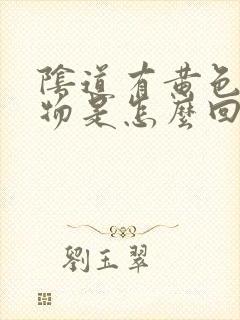 陰道有黄色
物是怎麼回
劉玉翠